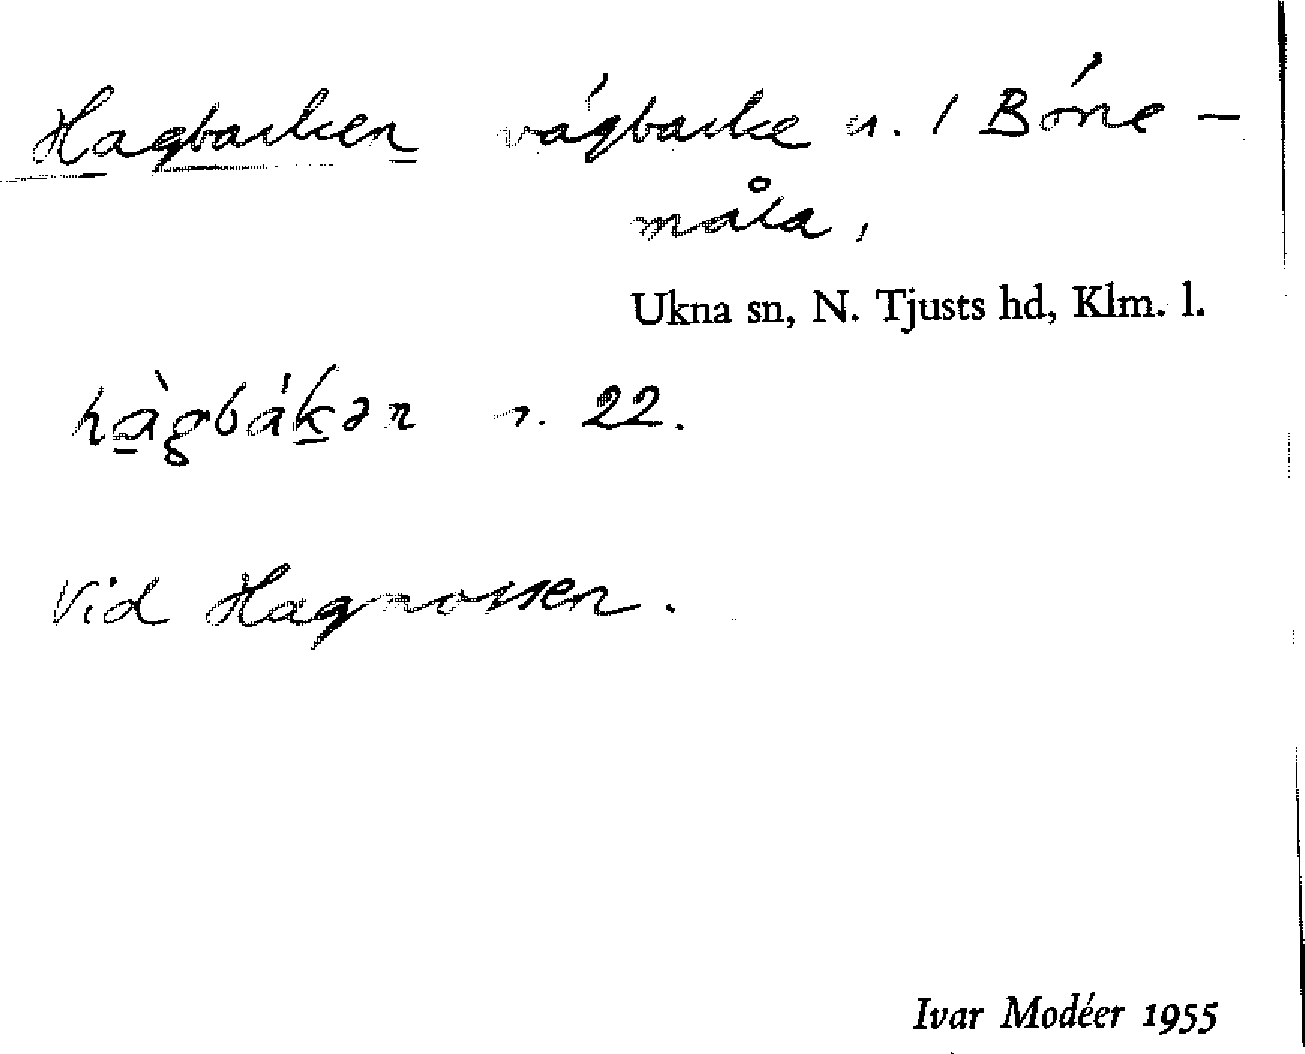 Hagbacken vägbacke n. / Börre-
måla,
Ukna sn, N. Tjusts hd, Klm. l.
hàgbákən r. 22.
Vid Hagmossen.
Ivar Modéer 1955